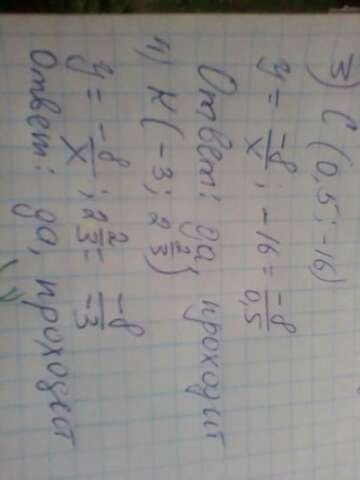 3) C (0,5; -16)
y = -8/x ; -16 = -8/0,5
Ответ: да, проходит
4) K (-3; 2 2/3)
y = -8/x ; 2 2/3 = -8/-3
Ответ: да, проходит